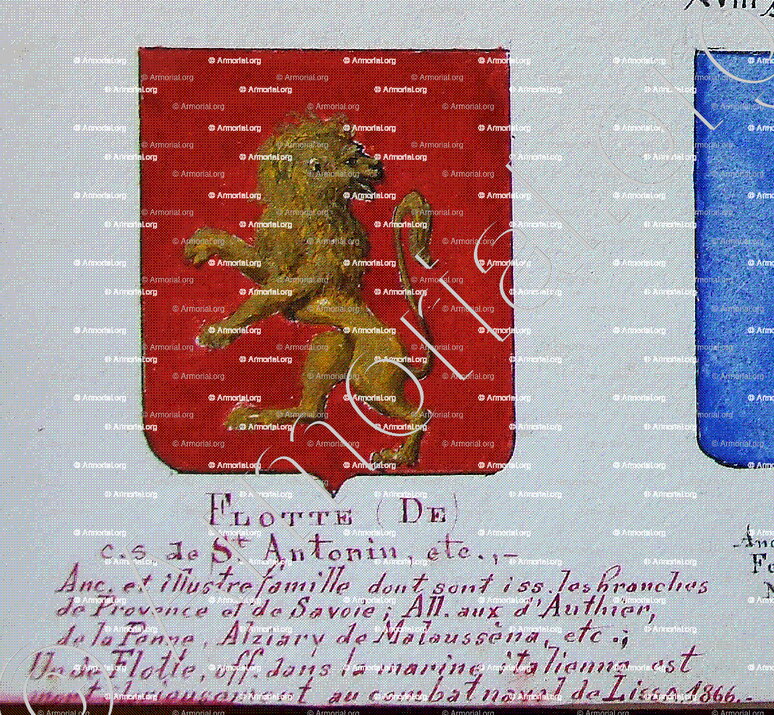 XVIII
FLOTTE (DE)
c.s. de St Antonin, etc.,-
Anc. et illustre famille dont sont iss. les branches
de Provence et de Savoie; All. aux d'Authier,
de la Penne, Alziary de Malaussèna, etc.;
Un de Flotte, off. dans la marine italienne est
mort au combat naval de Lissa 1866.-
Anc
Fe
© Armorial.org